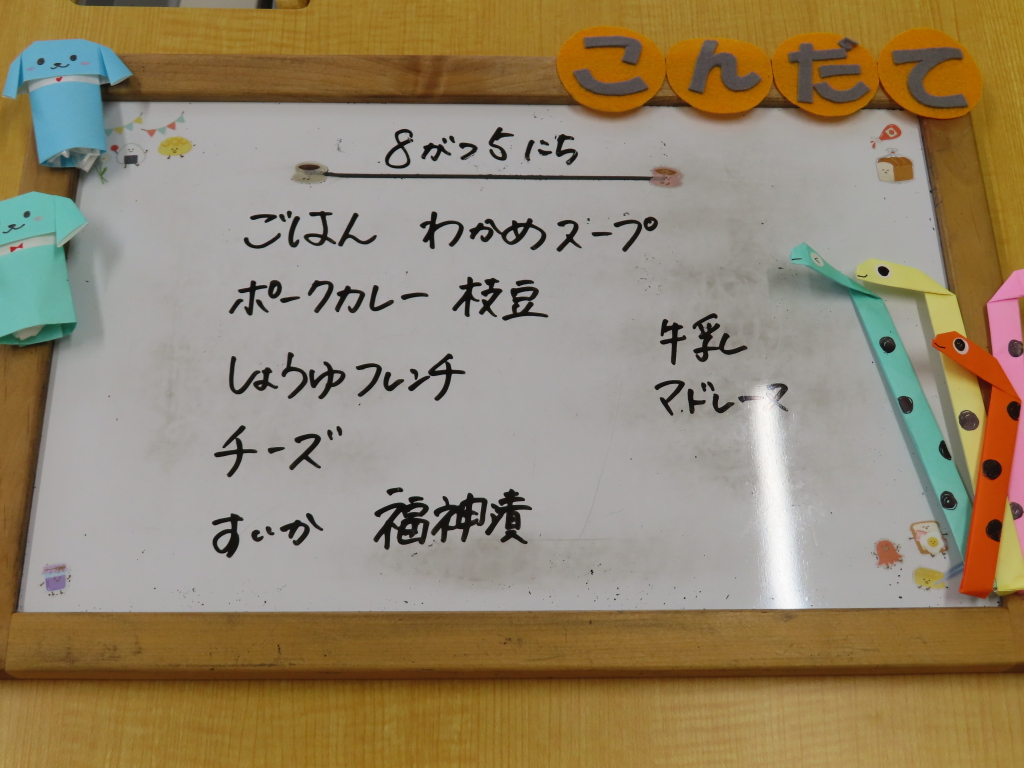 こんだて
8がつ5にち
ごはん わかめスープ
ポークカレー 枝豆
しょうゆフレンチ
チーズ
すいか 福神漬
牛乳
マドレーヌ